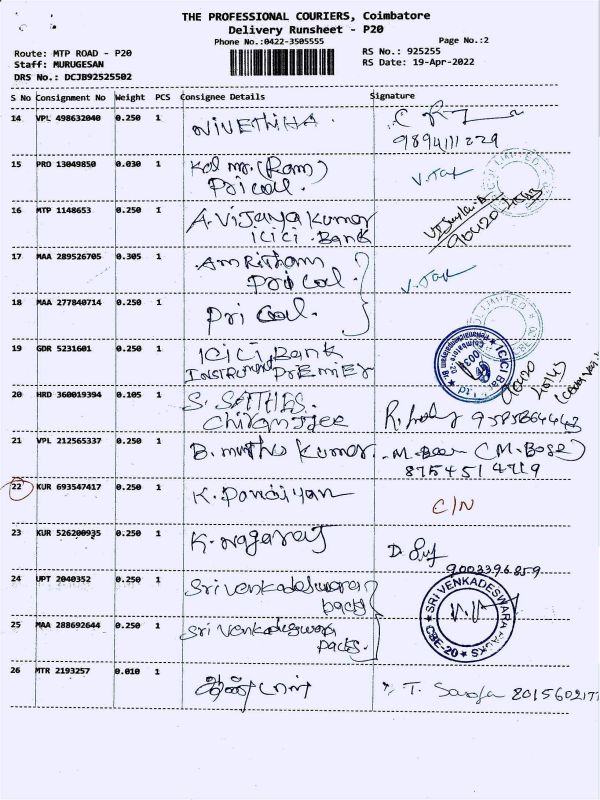 THE PROFESSIONAL COURIERS, Coimbatore
Delivery Runsheet - P20
Phone No.:0422-3505555
Page No.:2
Route: MTP ROAD - P20
RS No.: 925255
Staff: MURUGESAN
RS Date: 19-Apr-2022
DRS No.: DCJB92525502
S No Consignment No Weight PCS Consignee Details Signature
14 VPL 498632040 0.250 1 NIVETHIHA.
9894111229
15 PRO 13049850 0.030 1 Kal mr.(Ram)
Pricol.
16 MTP 1148653 0.250 1 A.Vijaya Kumar
ICICI. Bank
17 MAA 289526705 0.305 1 Amritham
Pricol.
18 MAA 277840714 0.250 1 Pricol.
19 GDR 5231601 0.250 1 ICICI Bank
Instrument Premier
20 HRD 360019394 0.105 1 S. SATHIS.
9585864443
21 VPL 212565337 0.250 1 B. muthu kumar. (M.Bose)
8754514719
22 KUR 693547417 0.250 1 K. Pandiyan C/N
23 KUR 526200935 0.250 1 K. Nagaraj
9003396859
24 UPT 2040352 0.250 1 Sri venkadeswara
packs
25 MAA 288692644 0.250 1 Sri venkadeswara
packs.
SRI VENKADESWARA PACKS
CBE-20
26 MTR 2193257 0.010 1 ஆண்டாள் T. Saroja